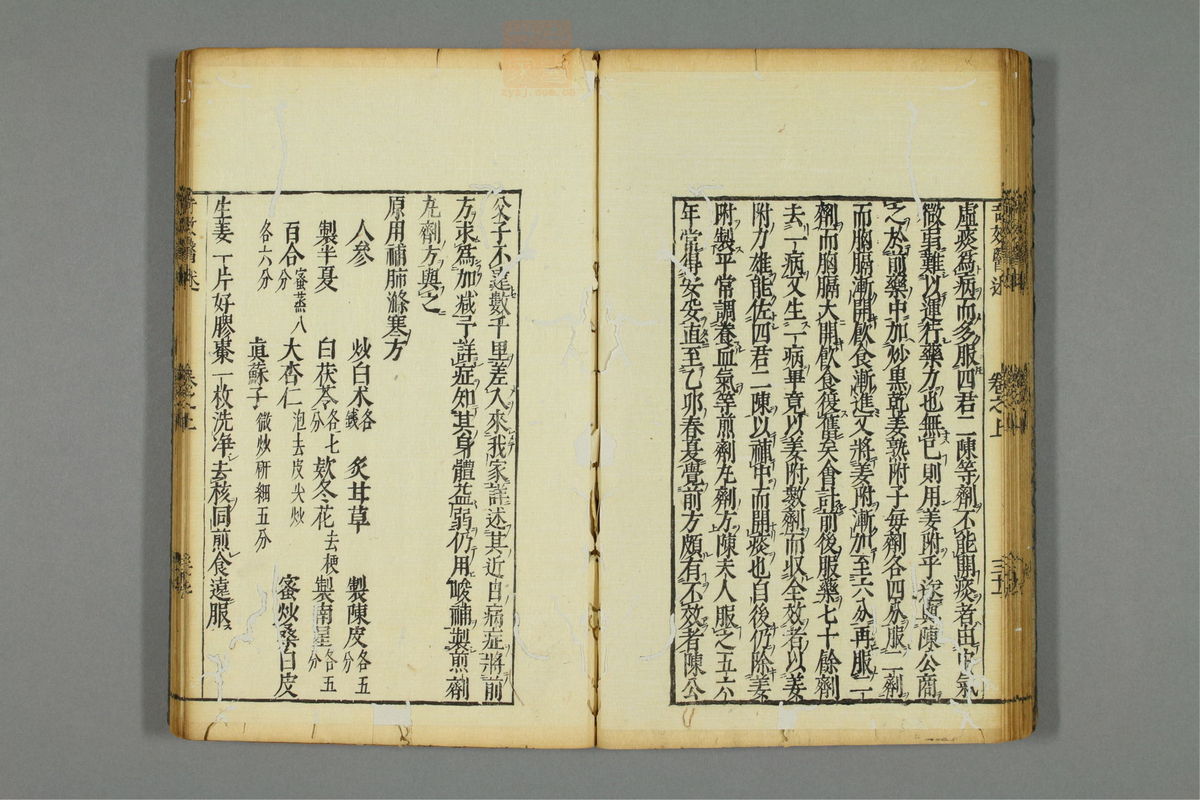 虛痰為病而多服四君二陳等劑不能開痰者由中氣
微弱難以運行藥力也無已則用姜附乎遂與陳公商
之於前藥中加炒黑乾姜熟附子每劑各四分服一劑
而胸膈漸開飲食漸進又將姜附漸加至六分再服二
劑而胸膈大開飲食復舊矣會計前後服藥七十餘劑
去一病又生一病畢竟以姜附數劑而収全效者以姜
附方雄能佐四君二陳以補中而開痰也自後仍除姜
附製平常調養血氣等煎劑丸劑方陳夫人服之五六
年常得安安直至乙卯春夏覺前方頗有不效者陳公
父子不遠數千里差人來我家詳述其近日病症將前
方求為加减予詳症知其身體益弱仍用峻補製煎劑
丸劑方與之
原用補肺滌寒方
人參
炒白术各錢
炙甘草
製陳皮各五分
製半夏
白茯苓各七分
欵冬花去梗
製南星各五分
百合蜜蒸八分
大杏仁泡去皮尖炒
蜜炒桑白皮
各六分
真蘇子微炒研細五分
生姜一片好膠棗一枚洗净去核同煎食遠服
卷之上
zysj.com.cn